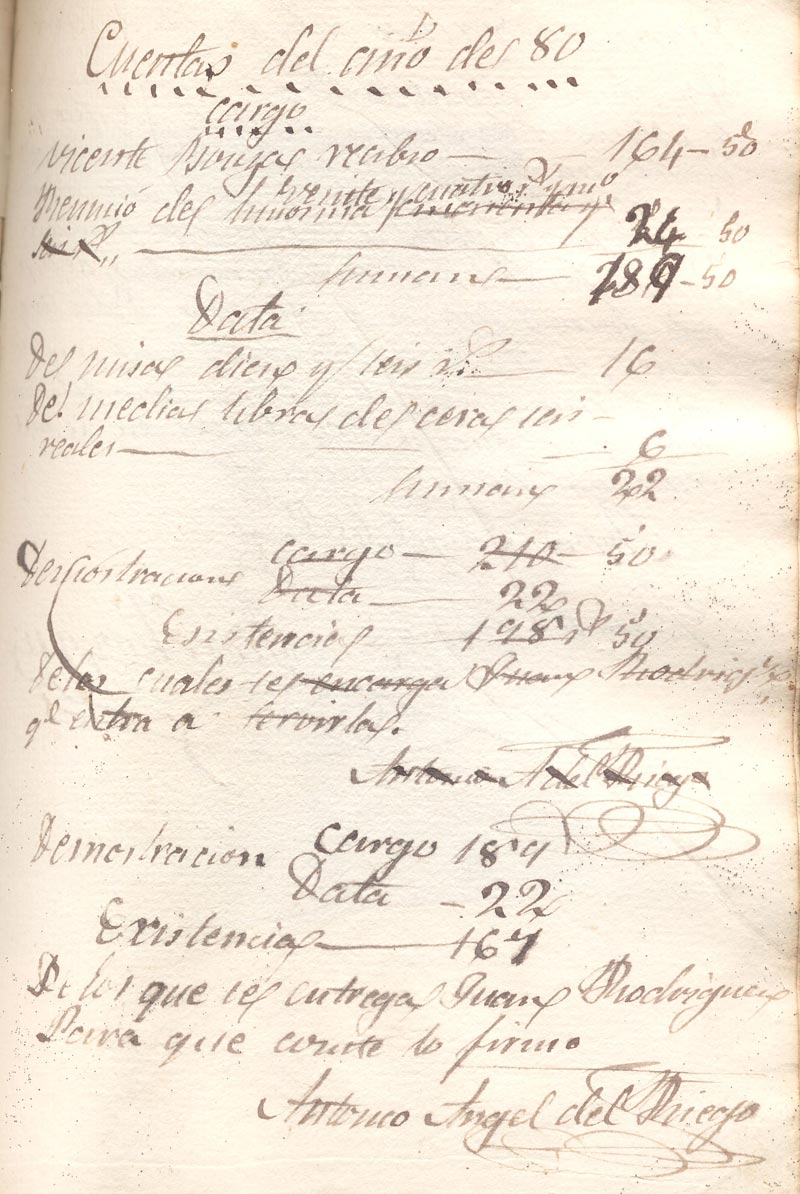 Cuentas del año de 80
cargo
Vicente Borjas recibio — 164 – 50
veinte y cuatro rs y mo
Reunió de limosna cuarenta y
seis rs — 24 50
suman — 189 – 50
Data
De misas diez y seis rs — 16
De medias libras de cera seis
reales — 6
suman 22
Demostracion cargo — 210 – 50
Data — 22
Existencias — 198 rs 50
de los cuales se encarga Juan Rodrigz
qe entra a servirlas.
Antonio A del Riego
Demostracion cargo 189
Data – 22
Existencias — 167
De los que se entrega Juan Rodriguez
Para que conste lo firmo
Antonio Angel del Riego